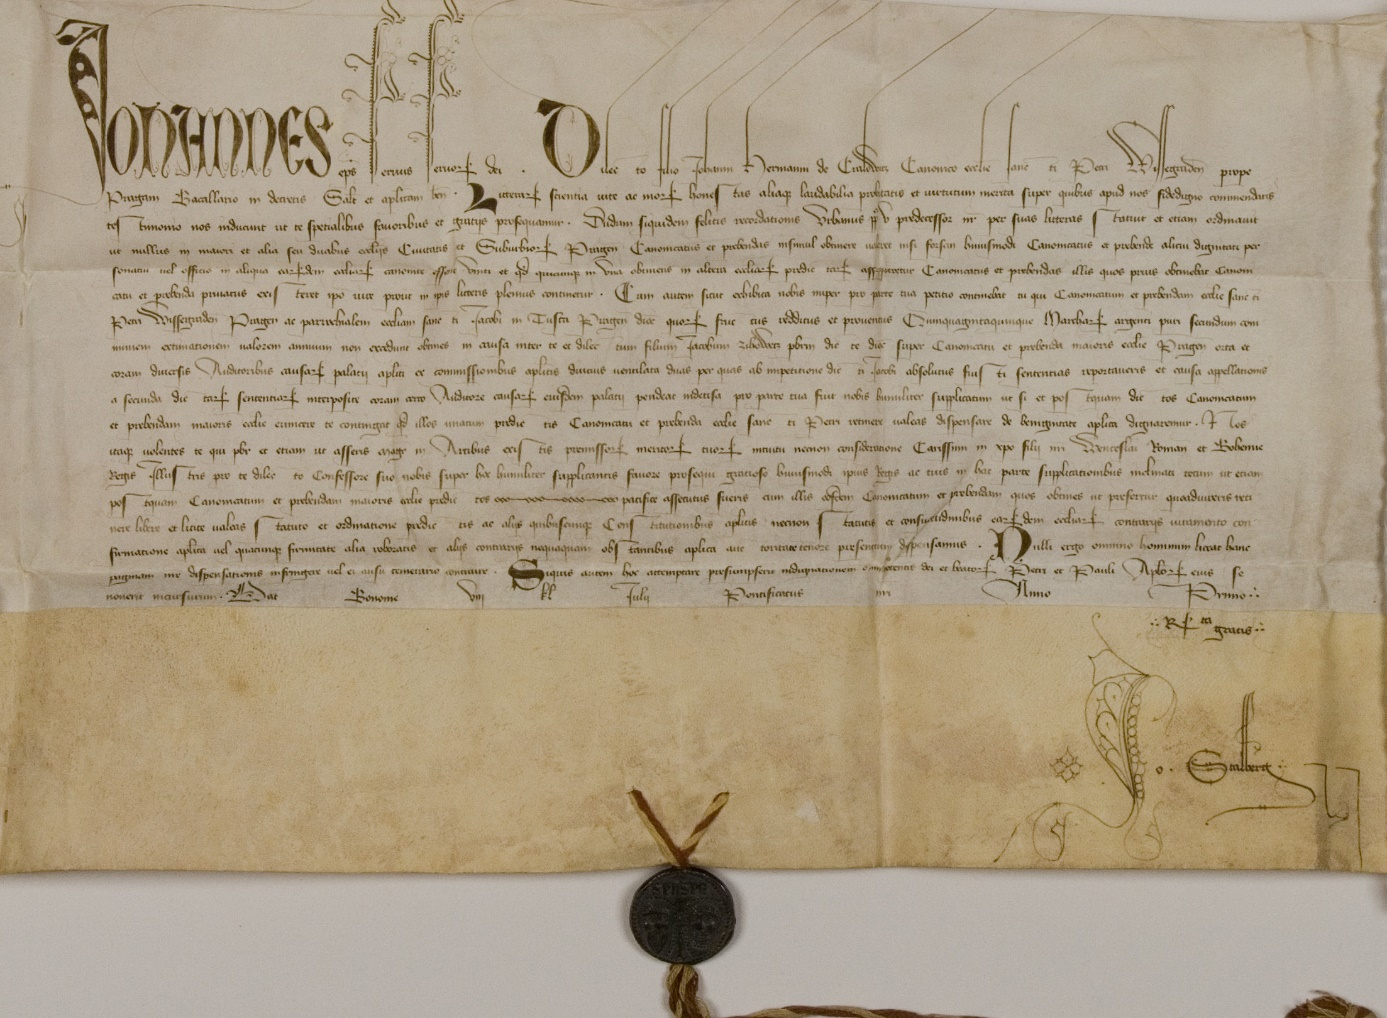 JOHANNES eps seruus seruor dei . Dilecto filio Johanni Hermanni de Canonico ecclie sancti Petri Wissegraden prope
Pragam Bacallario in decretis Salt et aplicam ben . Litterar scientia uite ac mor honestas aliaq laudabilia probitatis et uirtutum merita super quibus apud nos fidedigno commendaris
testimonio nos inducunt ut te specialibus fauoribus et gratijs prosequamur . Dudum siquidem felicis recordationis Urbanus pp v predecessor nr per suas litteras statuit et etiam ordinauit
ut nullus in maiori et alia seu duabus ecclijs Ciuitatis et Suburbior Pragen Canonicatus et prebendas insimul obtinere ualeret nisi forsan huiusmodi Canonicatus et prebende alicui dignitati per
sonatui uel officio in aliqua eardem ecclіar canonice essent uniti et qd quicunq in una obtinens in altera ecclіar predictar assequeretur Canonicatus et prebendas illis quos prius obtinebat Canoni
catu et prebenda priuatus existeret ipo iure prout in ipis litteris plenius continetur . Cum autem sicut exhibita nobis nuper pro parte tua petitio continebat tu qui Canonicatum et prebendam ecclie sancti
Petri Wissegraden Pragen ac parrochialem eccliam sancti Jacobi in Pragen dioc quor fructus redditus et prouentus Quinquagintaquinque Marchar argenti puri secundum com
munem extimationem ualorem annuum non excedunt obtines in causa inter te et dilectum filium Jacobum pbrm dicte dioc super Canonicatu et prebenda maioris ecclie Pragen orta et
coram diuersis Auditoribus causar palatij aplici ex commissionibus aplicis diutius uentilata duas per quas ab impetitione dicti Jacobi absolutus fuisti sententias reportaueris et causa appellationis
a secunda dictar sententiar interposite coram certo Auditore causar eiusdem palatij pendeat indecisa pro parte tua fuit nobis humiliter supplicatum ut si et postquam dictos Canonicatum
et prebendam maioris ecclie euincere te contingat qd illos unacum predictis Canonicatu et prebenda ecclie sancti Petri retinere ualeas dispensare de benignitate aplica dignaremur . Nos
itaq uolentes te qui pbr et etiam ut asseris magr in Artibus existis premissor meritor tuor intuitu necnon consideratione Carissimi in xpo filij nri Wenceslai Roman et Bohemie
Regis Illustris pro te dilecto Confessore suo nobis super hoc humiliter supplicantis fauore prosequi gratioso huiusmodi ipius Regis ac tuis in hac parte supplicationibus inclinati tecum ut etiam
postquam Canonicatum et prebendam maioris ecclie predictos pacifice assecutus fueris cum illis eosdem Canonicatum et prebendam quos obtines ut prefertur quoaduixeris reti
nere libere et licite ualeas statuto et ordinatione predictis ac alijs quibuscunq Constitutionibus aplicis necnon statutis et consuetudinibus eardem ecclіar contrarijs iuramento con
firmatione aplica uel quacunq firmitate alia roboratis et alijs contrarijs nequaquam obstantibus aplica auctoritate tenore presentium dispensamus . Nulli ergo omnino hominum liceat hanc
paginam nre dispensationis infringere uel ei ausu temerario contraire . Siquis autem hoc attemptare presumpserit indignationem omnipotentis dei et beator Petri et Pauli Aplor eius se
nouerit incursurum . Dat Bononie viij kl Julij Pontificatus nri Anno Primo
Rta gratis
Jo. Stalberg
SPASPE